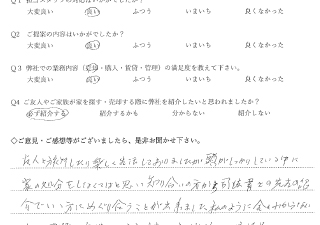 Q1 担当スタッフの対応はいかがでしたか?
大変良い 良い ふつう いまいち 良くなかった
Q2 ご提案の内容はいかがでしたか?
大変良い 良い ふつう いまいち 良くなかった
Q3 弊社での業務内容(売却・購入・賃貸・管理)の満足度を教えて下さい。
大変良い 良い ふつう いまいち 良くなかった
Q4 ご友人やご家族が家を探す・売却する際に弊社を紹介したいと思われますか?
必ず紹介する 紹介するかも 分からない 紹介しない
◇ご意見・ご感想等がございましたら、是非お聞かせ下さい。
友人と旅行したり楽しく生活しておりましたが頭がしっかりしている中に
家の処分をしなくてはと思い知り合いの方から司法書士の先生の紹
介でいい方にめぐり合うことが出来ました私のように